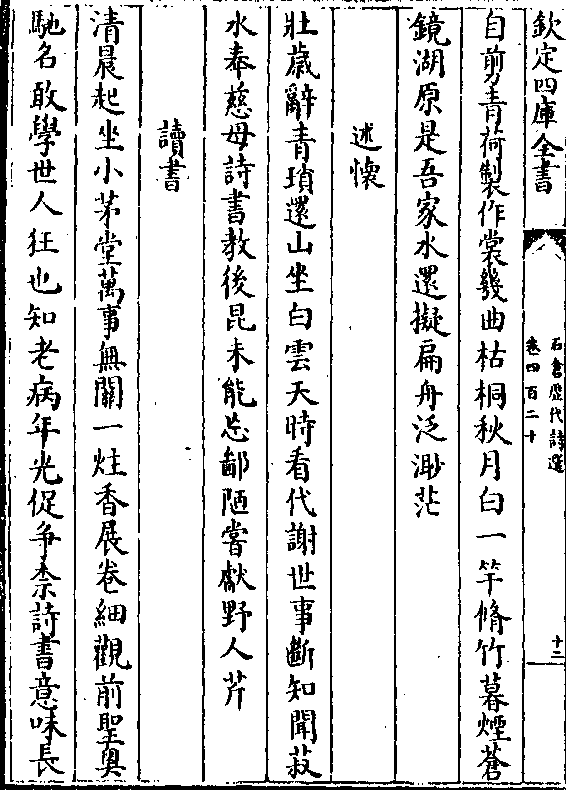 欽定四庫全書
石倉歷代詩選
卷四百二十
十二
自剪青荷製作裳幾曲枯桐秋月白一竿脩竹暮煙蒼
鏡湖原是吾家水還擬扁舟泛渺茫
述懷
壯歳辭青瑣還山坐白雲天時看代謝世事斷知聞菽
水奉慈母詩書教後昆未能忘鄙陋嘗獻野人芹
讀書
清晨起坐小茅堂萬事無關一炷香展卷細觀前聖奥
馳名敢學世人狂也知老病年光促争柰詩書意味長